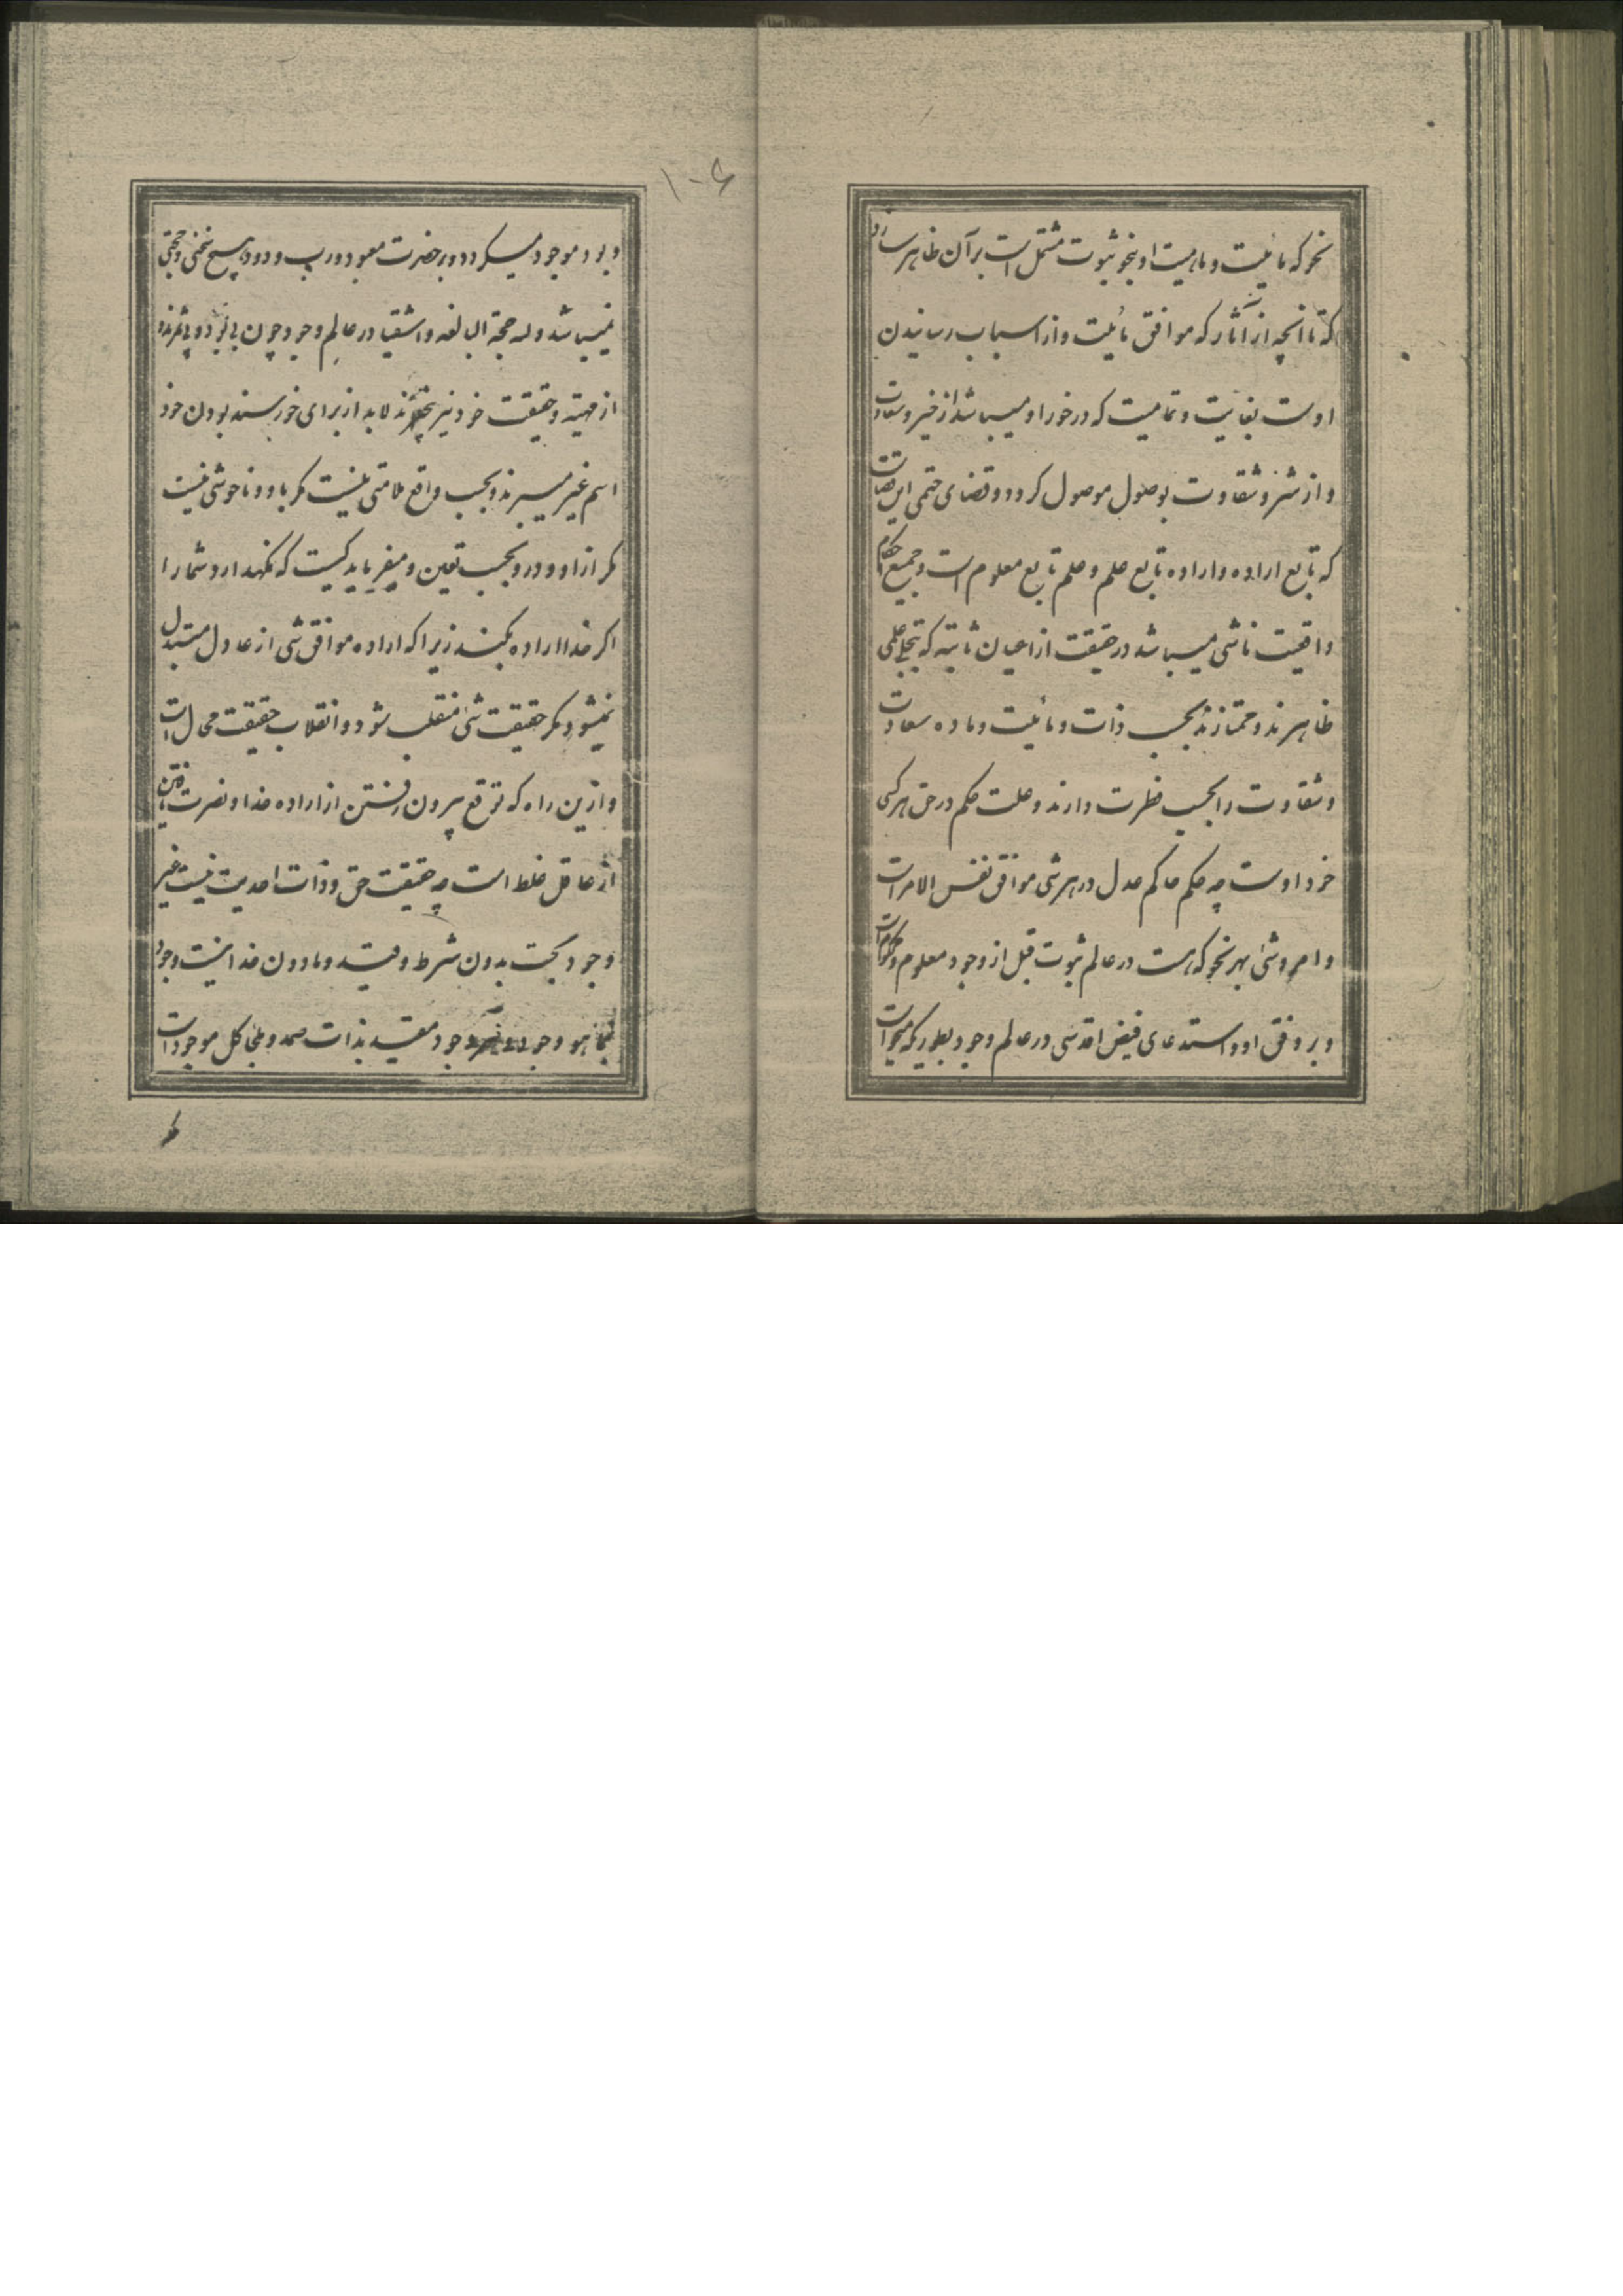 نحو که مائیت و ماهیت او بنحو ثبوت مشتمل است بر آن ظاهر سازد
که تا آنچه از آثار که موافق مائیت و از اسباب رسانیدن
اوست بغایت و تمامیت که در خور او میباشد از خیر و سعادت
و از شر و شقاوت بوصول موصول کردد و قضای حتمی این
که تابع اراده و اراده تابع علم و علم تابع معلوم است و جمیع احکام
واقعیت ناشی میباشد در حقیقت از اعیان ثابته که تجلی علمی
ظاهرند و ممتازند بحسب ذات و مائیت و ماده سعادت
و شقاوت را بحسب فطرت دارند و علت حکم در حق هر کسی
خود اوست چه حکم حاکم عدل در هر شی موافق نفس الامر است
و امر و شئ بهر نحو که هست در عالم ثبوت قبل از وجود معلوم و محکوم است
و بر وفق او و استدعای فیض اقدسی در عالم وجود بطوریکه میخواست
و بود موجود میکردد و بر حضرت معبود و رب ودود هیچ نحثی و حجتی
نمیباشد و له حجة البالغه و اشقیا در عالم وجود چون
از مهیته و حقیقت خود نیز لابد از برای خورسند بودن خود
اسم غیر میبرند و بحسب واقع ملامتی نیست مکر باو و ناخوشی نیست
مکر از او و در و بحسب تعین و میفرماید کیست که نکهدارد شما را
اکر خدا اراده بکند زیرا که اراده موافق شی از عادل متبدل
نمیشود مکر حقیقت شئ منقلب شود و انقلاب حقیقت محال است
و ازین راه که توقع بیرون رفتن از اراده خدا و نصرت یافتن
از عاقل غلط است چه حقیقت حق و ذات احدیت نیست غیر
وجود بحت بدون شرط و قید و مادون خدا نیست وجود
بما هو وجود وجود مقید بذات صمد و ملجأ کل موجودات